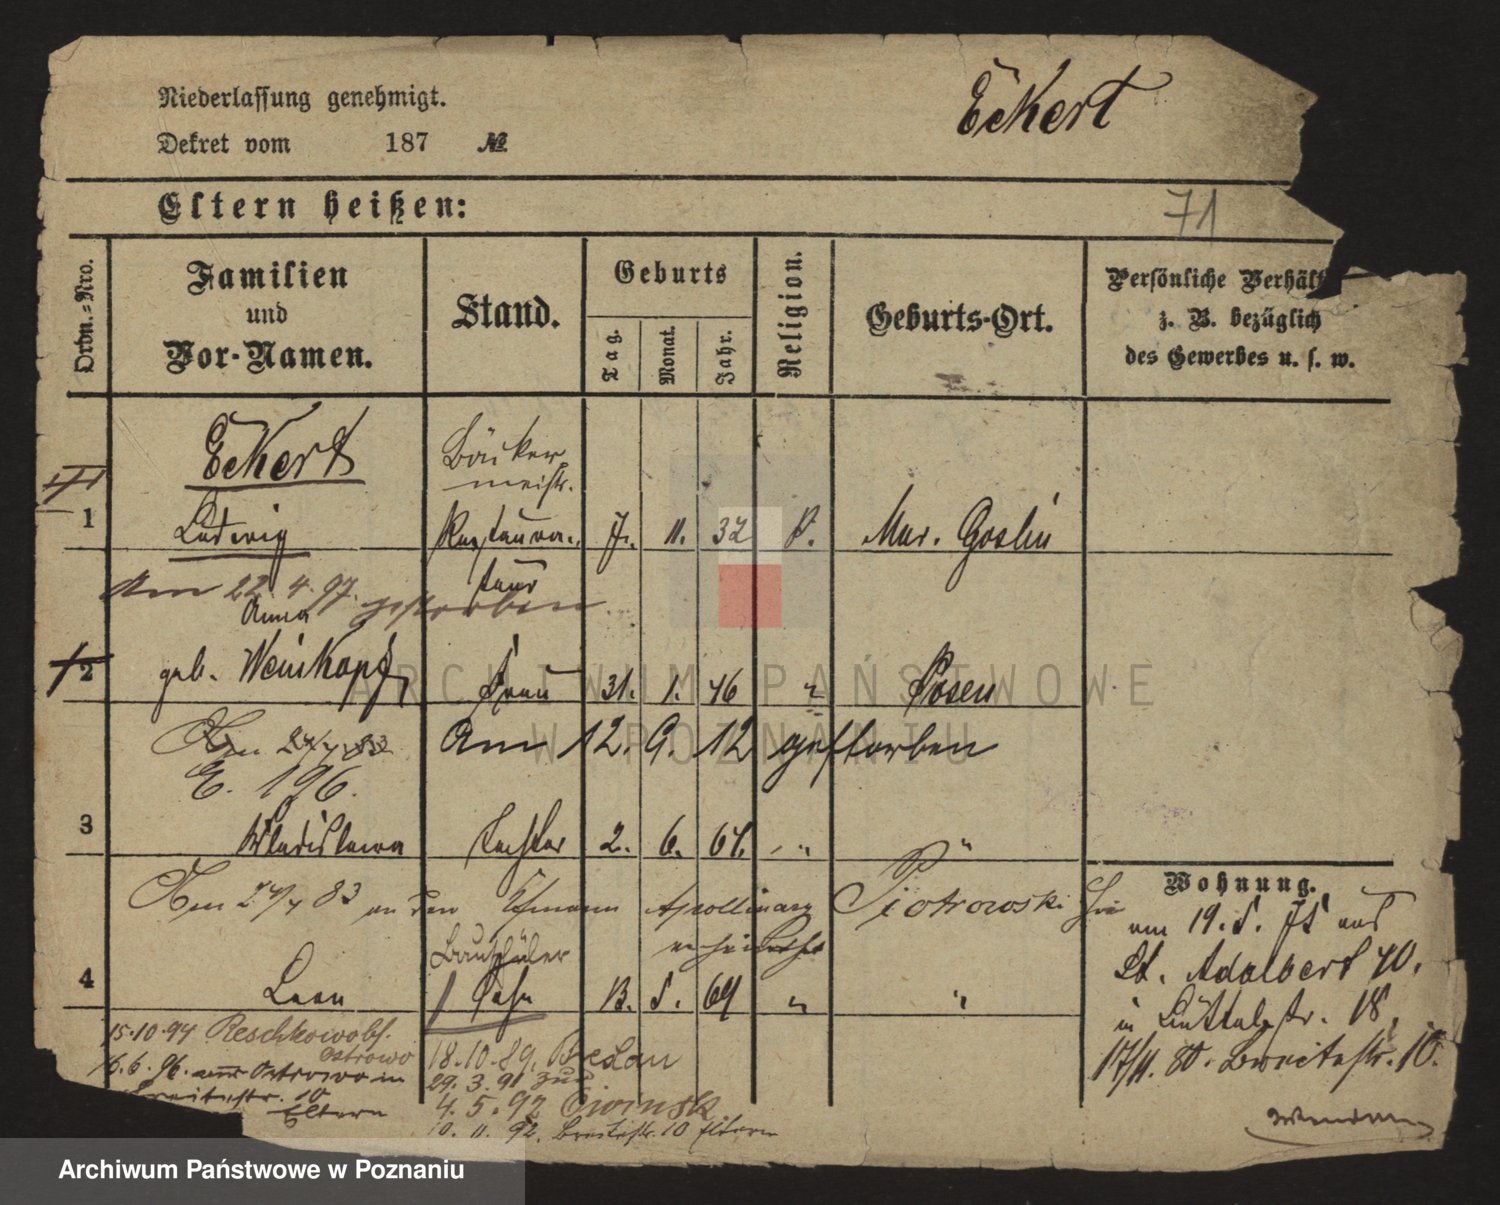 Niederlassung genehmigt.
Eckert
Dekret vom 187 №
Eltern heißen:
71
Ordn.=Nro.
Familien
und
Vor-Namen.
Stand.
Geburts
Tag.
Monat.
Jahr.
Religion.
Geburts-Ort.
Persönliche Verhält
z. B. bezüglich
des Gewerbes u. s. w.
Eckert
Bäcker
meistr.
1 Ludwig Restaura- 7. 11. 32 K. Mur. Goslin
teur
Am 22.4.97. gestorben
Anna
2 geb. Weinkopf, Frau 31. 1. 46 " Posen
Am 12. 9. 12 gestorben
E. 196.
3 Wladislawa Tochter 2. 6. 67. " "
Am 24/4 83 an den Apollinary Piotrowski hie
verheirathet
4 Leon Sohn 13. 5. 69 " "
Wohnung.
am 19. 5. 75 aus
St. Adalbert 40.
in Büttelstr. 18.
17/11. 80. Breitestr. 10.
15.10.94 Reschkow bf.
Ostrowo
16.6.96. aus Ostrowo in
Breitestr. 10
Eltern
18.10.89. Breslau
29.3.91 zur.
4.5.92
10.11.92. Breitestr. 10 Eltern
ARCHIWUM PAŃSTWOWE
W POZNANIU
Archiwum Państwowe w Poznaniu